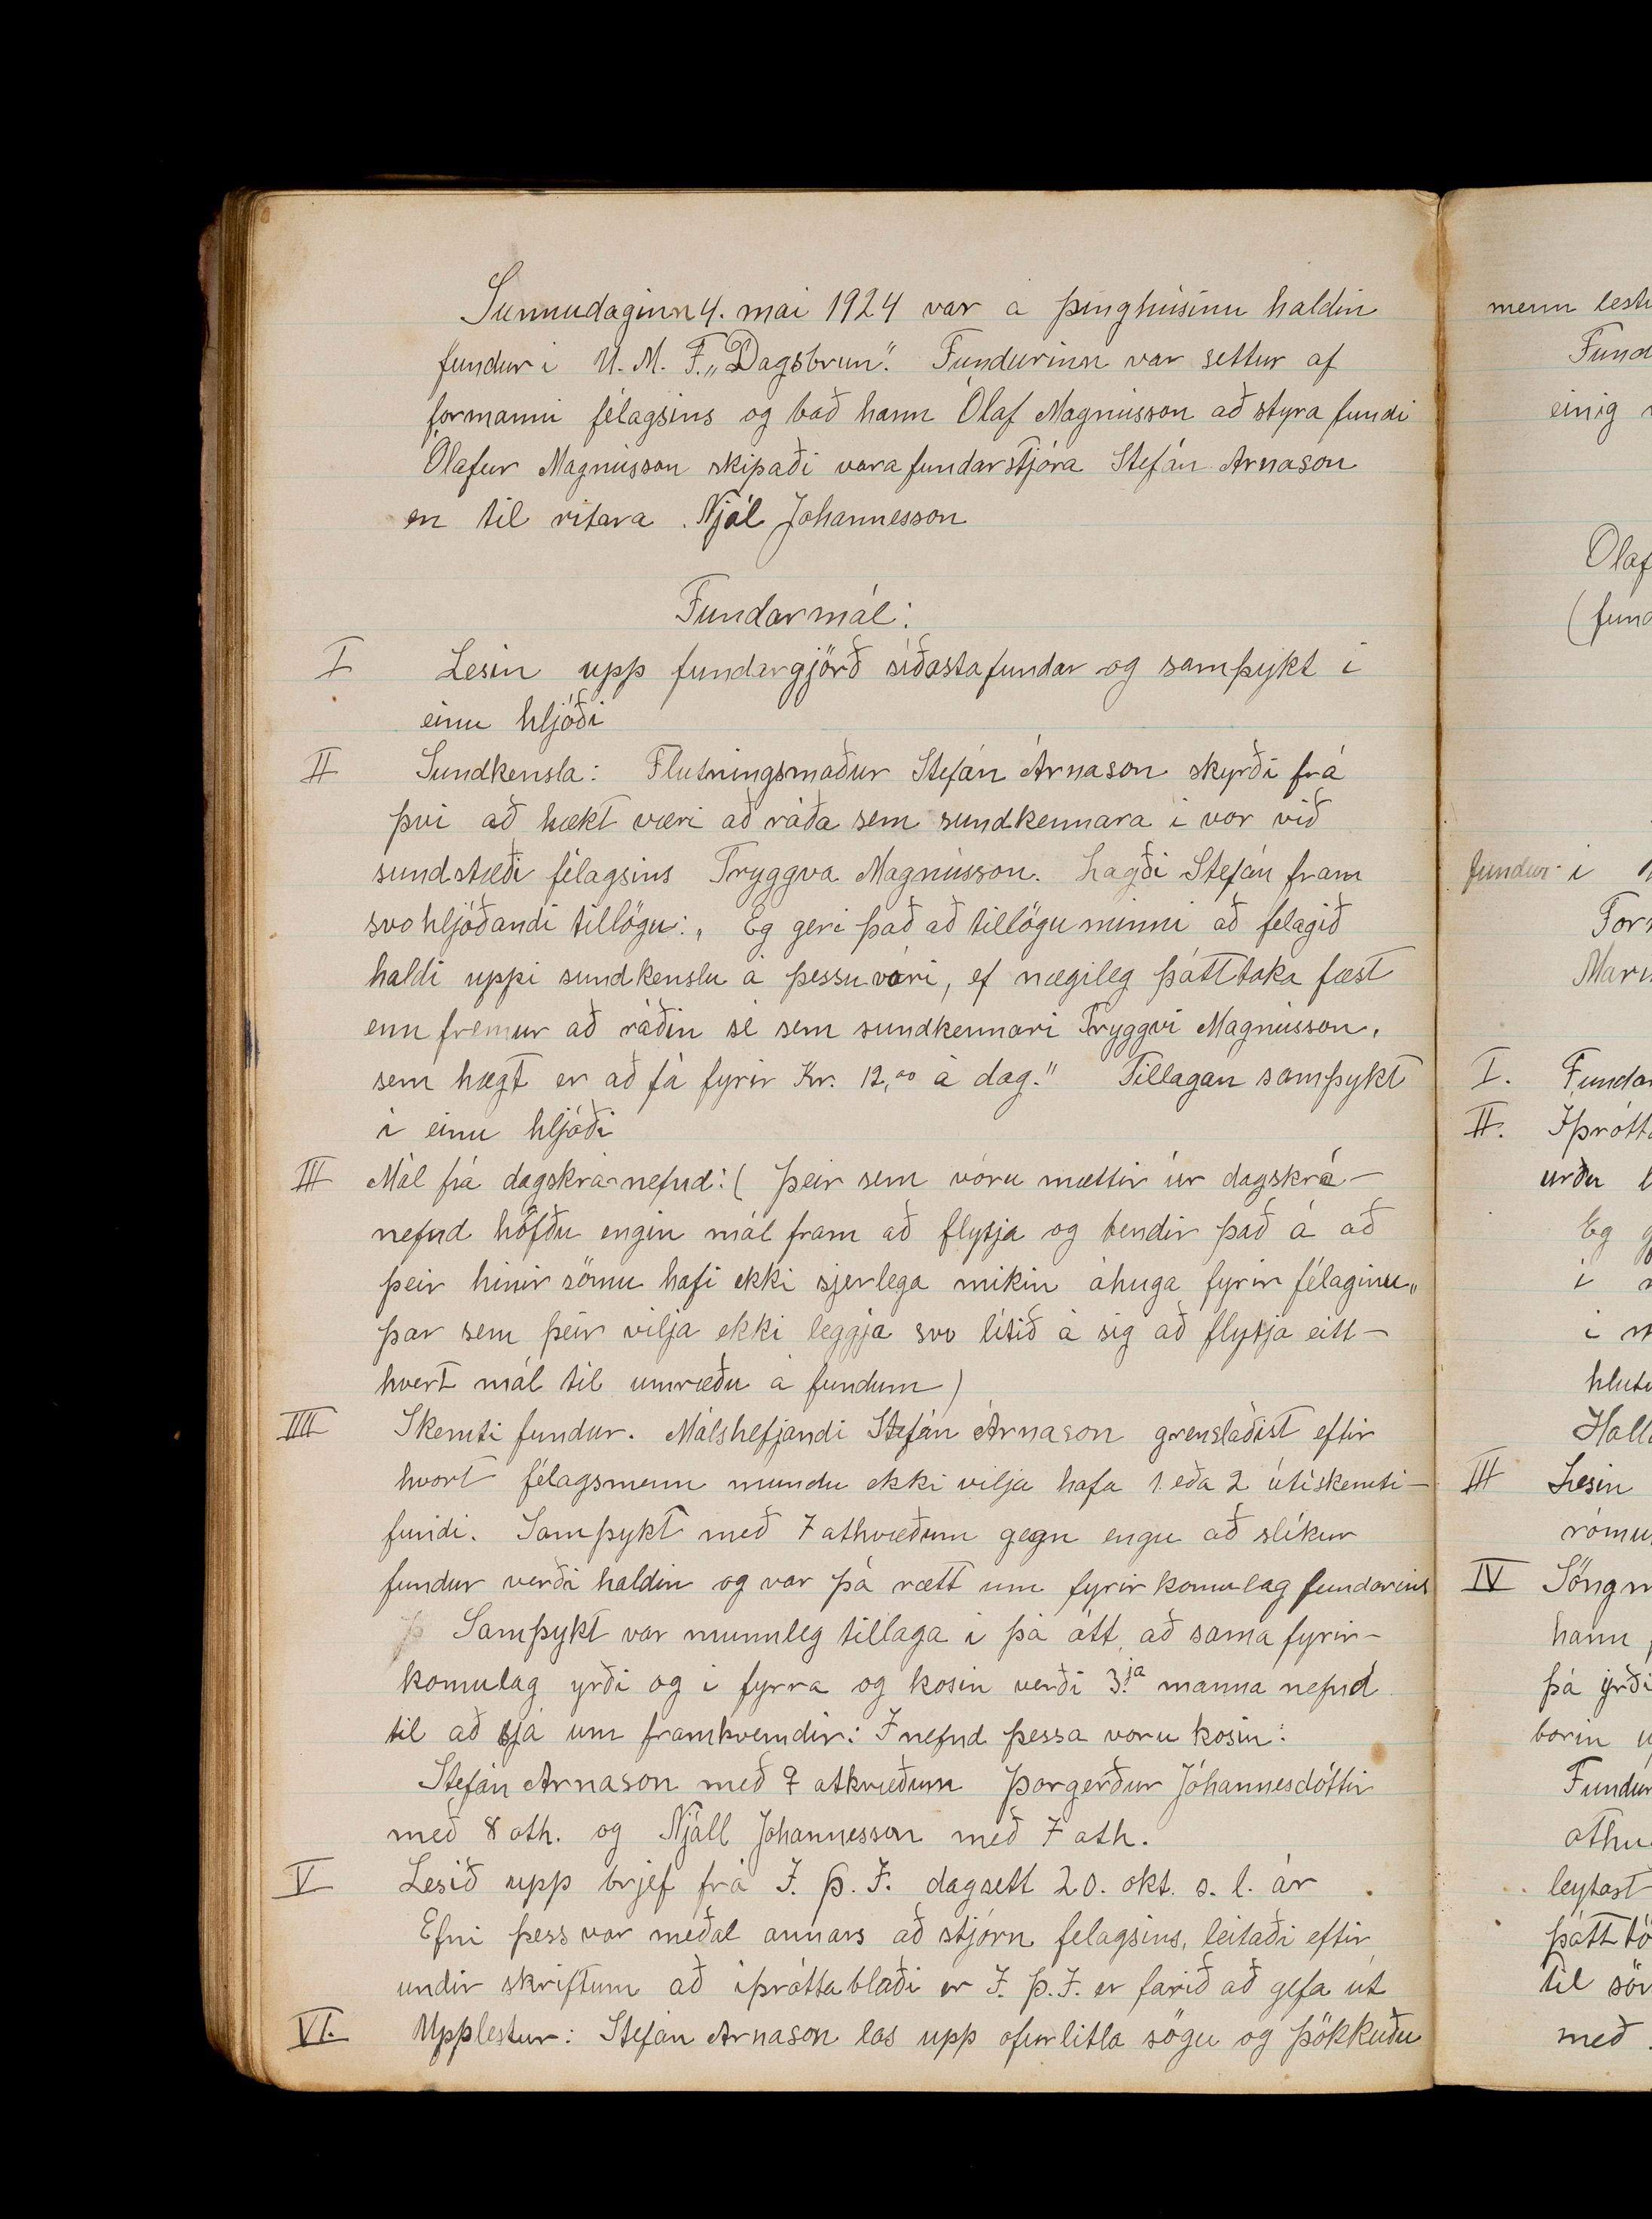 Sunnudaginn 4. mai 1924 var á þinghúsinu haldin
fundur i U. M. F. „Dagsbrun". Fundurinn var settur af
formanni félagsins og bað hann Ólaf Magnússon að styra fundi
Ólafur Magnússon skipaði vara fundarstjóra Stefán Arnason
en til ritara Njál Johannesson
Fundarmál:
I Lesin upp fundargjörð síðasta fundar og samþykt i
einu hljóði
II Sundkensla: Flutningsmaður Stefán Árnason skyrði frá
þvi að hækt væri að ráða sem sundkennara i vor við
sundstæði félagsins Tryggva Magnússon. Lagði Stefán fram
svohljóðandi tillögu: „ Eg geri það að tillögu minni að felagið
haldi uppi sundkenslu á þessu vori, ef nægileg þátttaka fæst
enn fremur að ráðin sé sem sundkennari Tryggvi Magnússon,
sem hægt er að fá fyrir Kr. 12,00 á dag." Tillagan samþykt
i einu hljóði
III Mál frá dagskrá-nefnd: ( Þeir sem vóru mættir úr dagskrá-
nefnd höfðu engin mál fram að flytja og bendir það á að
þeir hinir sömu hafi ekki sjerlega mikin áhuga fyrir félaginu„
þar sem þeir vilja ekki leggja svo lítið á sig að flytja eitt-
hvert mál til umræðu á fundum)
IIII Skemti fundur. Málshefjandi Stefán Árnason grenslaðist eftir
hvort félagsmenn mundu ekki vilja hafa 1. eða 2 útiskemti-
fundi. Samþykt með 7 athvæðum gegn engu að slíkur
fundur verði haldin og var þá rætt um fyrir komulag fundarins
Samþykt var munnleg tillaga i þá átt, að sama fyrir-
komulag yrði og i fyrra og kosin verði 3.ja manna nefnd
til að sjá um framkvemdir: I nefnd þessa voru kosin:
Stefán Arnason með 9 atkvæðum Þorgerður Jóhannesdóttir
með 8 ath. og Njáll Johannesson með 7 ath.
V Lesið upp brjef frá I. Þ. I. dagsett 20. okt. s. l. ár
Efni þess var meðal annars að stjórn felagsins, leitaði eftir
undir skriftum að iþróttablaði er I. Þ. I. er farið að gefa út
VI. Upplestur: Stefán Arnason las upp ofurlitla sögu og þökkuðu
menn
einig
fundur i
I.
II.
urðu
Eg
i
i
III Lesin
IV
hann
þá yrði
borin
leytast
til
með